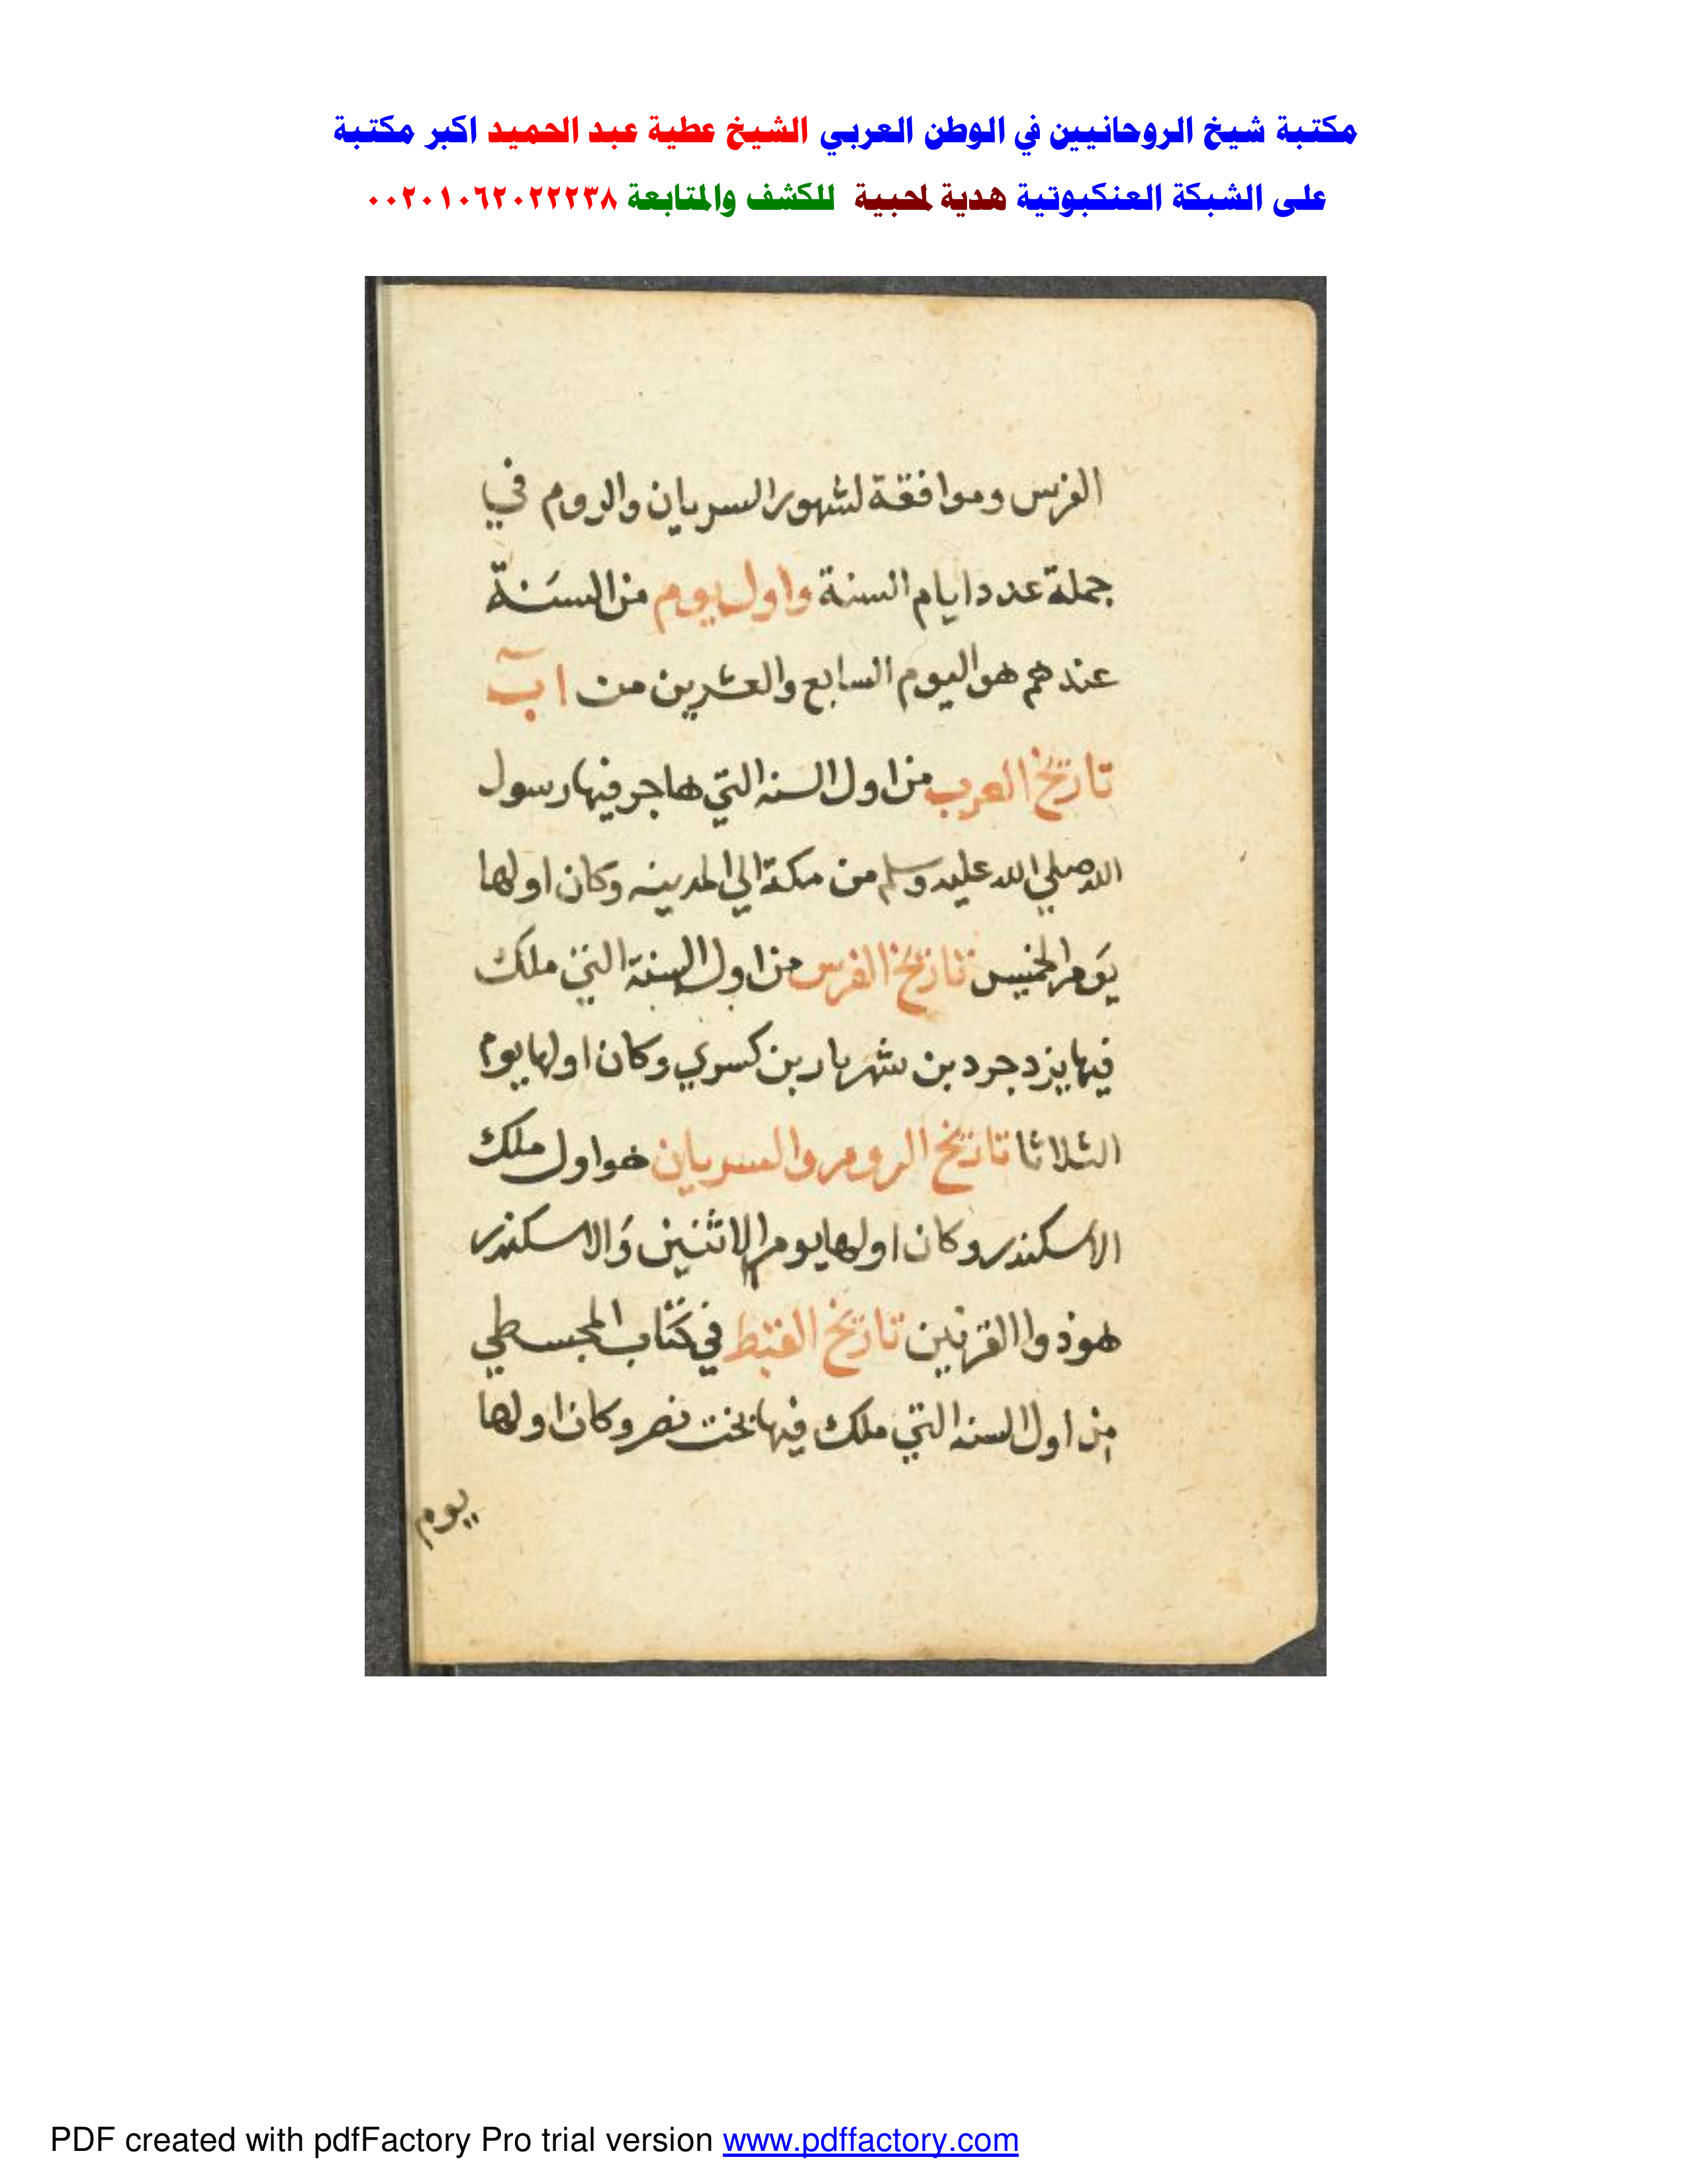 مكتبة شيخ الروحانيين في الوطن العربي الشيخ عطية عبد الحميد اكبر مكتبة
على الشبكة العنكبوتية هدية لمحبية للكشف والمتابعة ٠٠٢٠١٠٦٢٠٢٢٢٣٨
الفرس وموافقة لشهور السريان والروم في
جملة عدد ايام السنة واول يوم من السَنة
عندهم هو اليوم السابع والعشرين من آب
تاريخ العرب من اول السنه التي هاجر فيها رسول
الله صلي الله عليه وسلم من مكة الي المدينه وكان اولها
يَوم الخميس تاريخ الفرس من اول السنة التي ملك
فيها يزدجرد بن شهريار بن كسري وكان اولها يوم
الثلاثا تاريخ الروم والسريان هو اول ملك
الاسكندر وكان اولها يوم الاثنين وَالاسكندر
هو ذوا القرنين تاريخ القبط في كتاب المجسطي
من اول السنه التي ملك فيها بخت نصر وكان اولها
يوم
PDF created with pdfFactory Pro trial version www.pdffactory.com